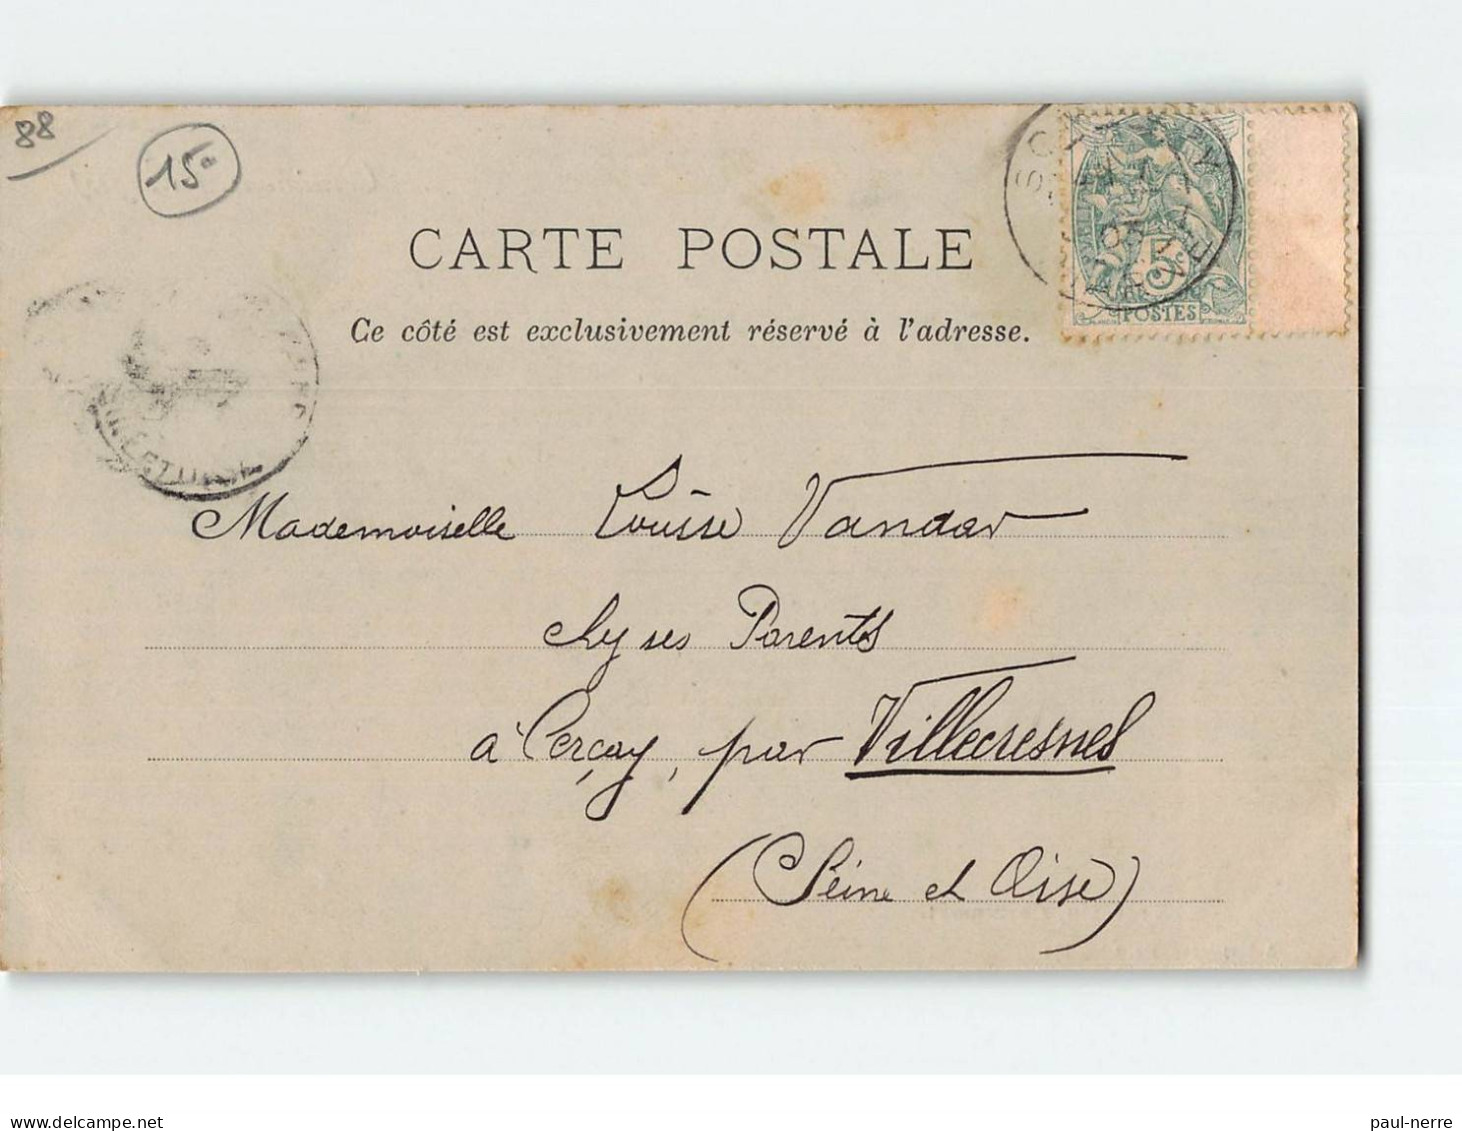 88
15°
CARTE POSTALE
Ce côté est exclusivement réservé à l'adresse.
5
POSTES
Mademoiselle Louise Vandar
chy ses Parents
à Cerçay, par Villecresnes
(Seine et Oise)
www.delcampe.net
paul-nerre